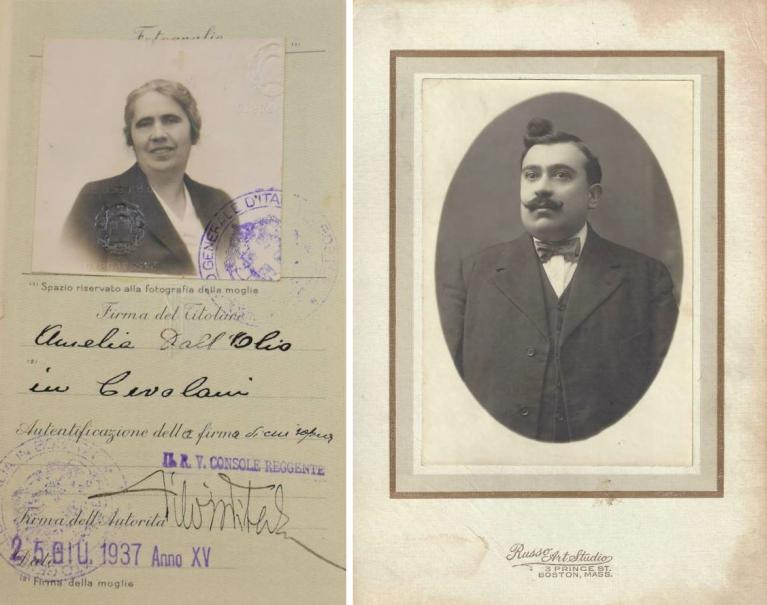 Fotografia
(2)
GENERALE D'ITA
(2) Spazio riservato alla fotografia della moglie
Firma del Titolare
Amelia Dall'Olio
(3)
in Cevolani
Autentificazione della firma di cui sopra
IL R. V. CONSOLE REGGENTE
Firma dell'Autorità
Data
25 GIU. 1937 Anno XV
(3) Firma della moglie
Russo Art Studio
3 PRINCE ST.
BOSTON, MASS.